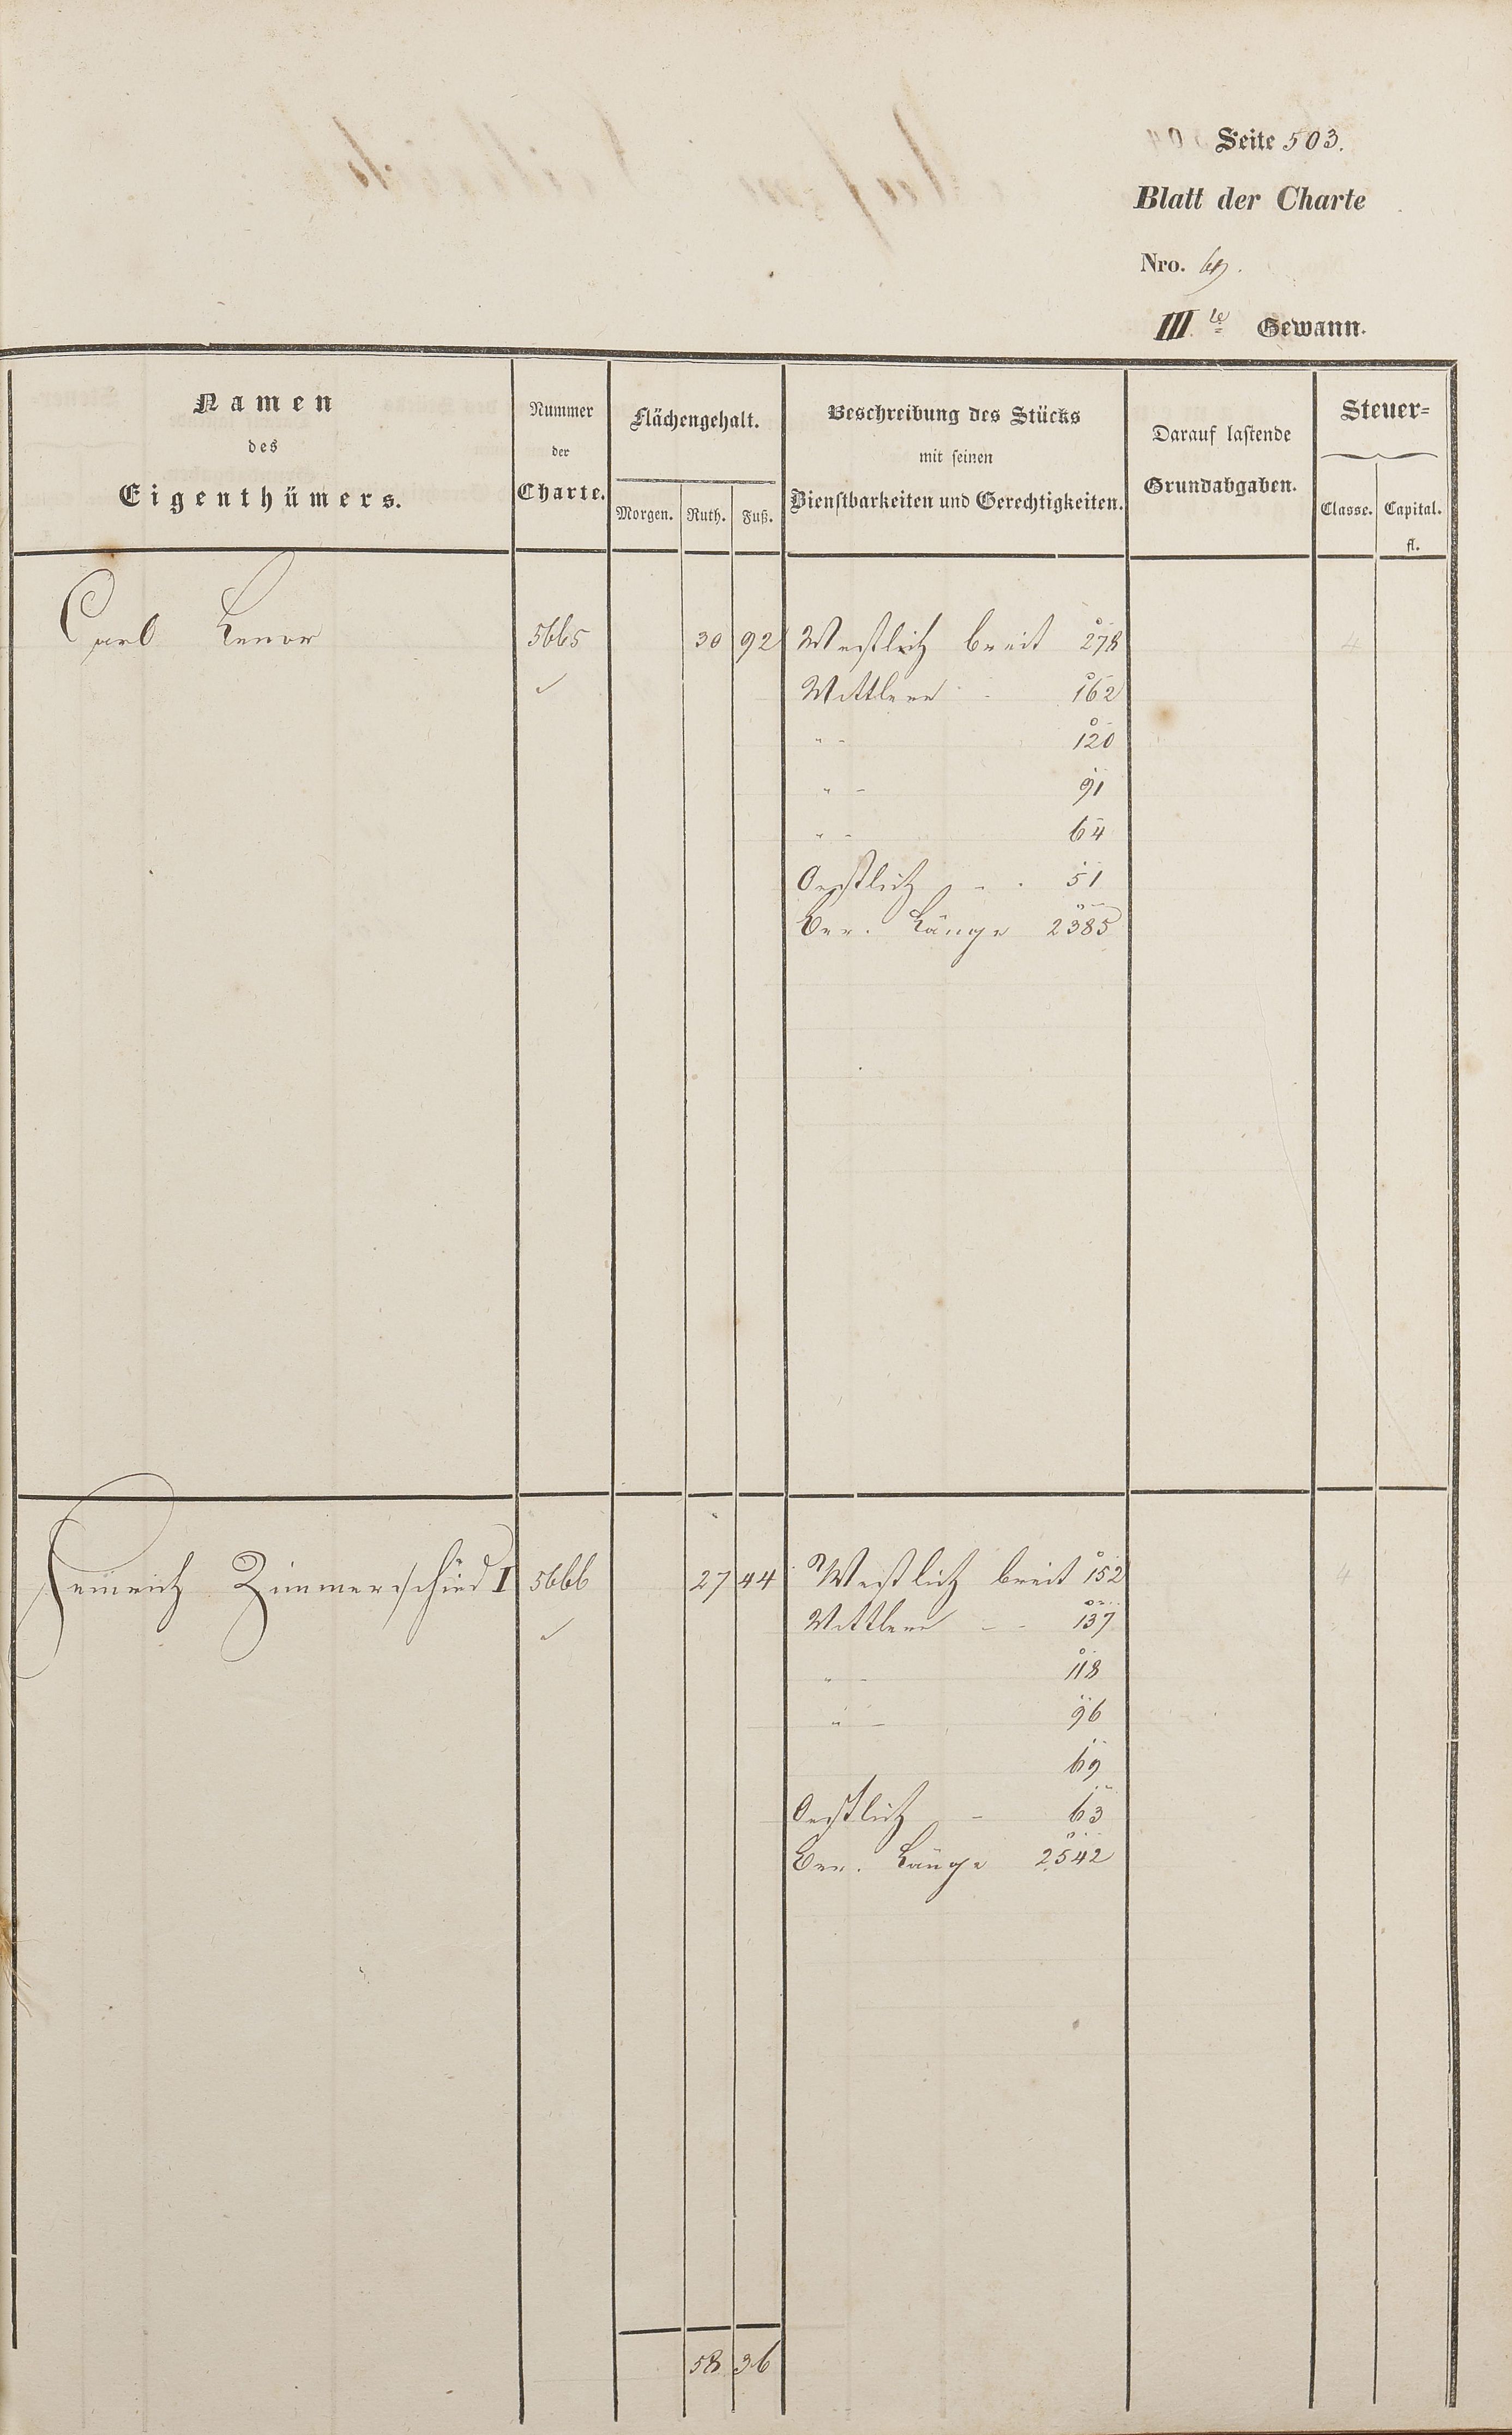 Seite 503.
Blatt der Charte
Nro. 69.
III.te Gewann.
Namen
des
Eigenthümers.
Nummer
der
Charte.
Flächengehalt.
Morgen. Ruth. Fuß.
Beschreibung des Stücks
mit seinen
Dienstbarkeiten und Gerechtigkeiten.
Darauf lastende
Grundabgaben.
Steuer-
Classe. Capital.
fl.
Carl 5665 30 92 Westlich breit 278 4
Mittlere - 162
" - 120
" - 91
" - 64
Oestlich - - 51
Ber. Länge 2385
Heinrich Zimmerschied I 5666 27 44 Westlich breit 152 4
Mittlere - - 137
" - 118
" - 96
69
Oestlich - 63
Ber. Länge 2542
58 36